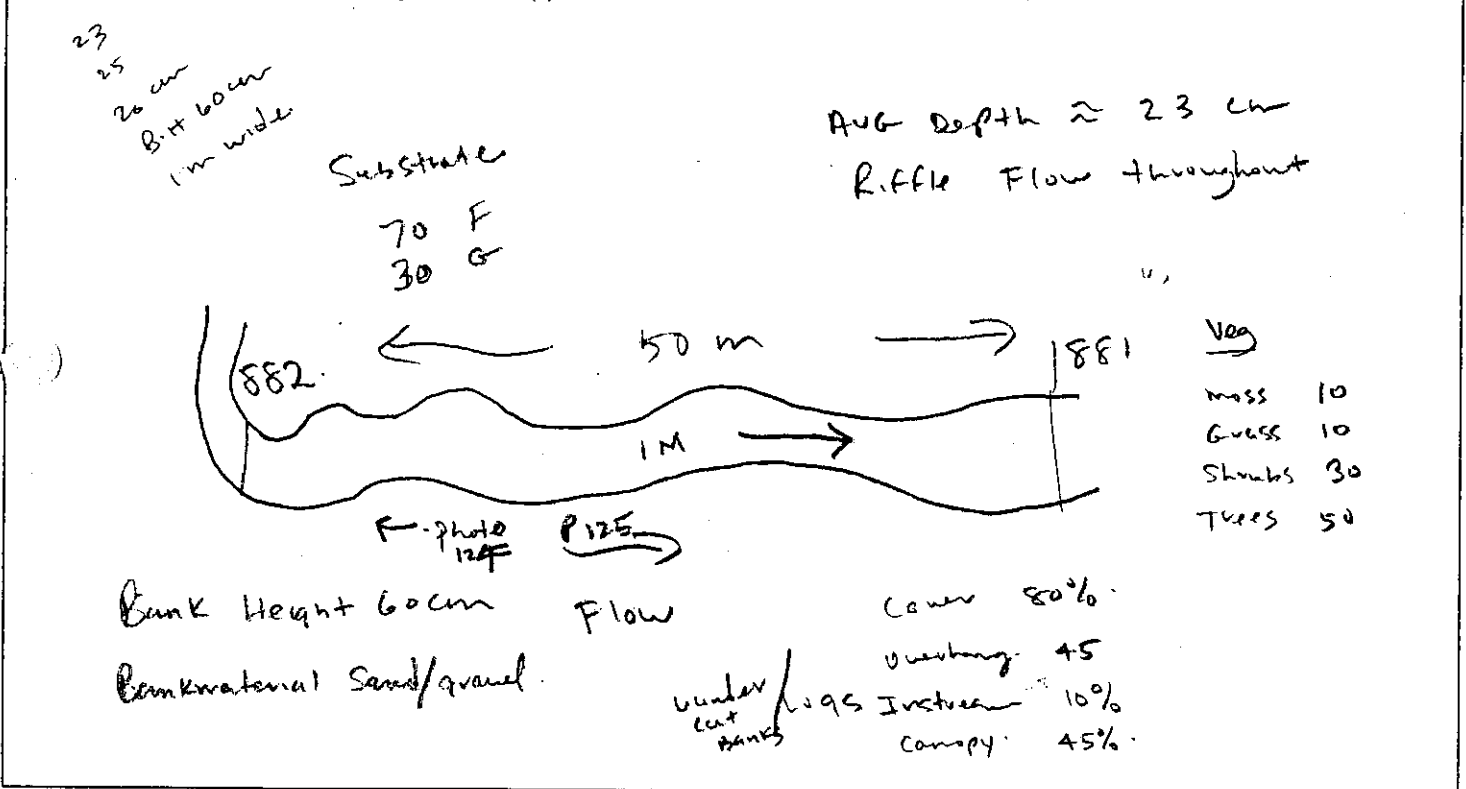 23
25
20 cm
B.H 60 cm
1m wide.
AVG Depth ≈ 23 cm
Riffle Flow throughout
Substrate
70 F
30 G
50 m
882.
881
1 M
Veg
moss 10
Grass 10
Shrubs 30
Trees 50
photo 124
P125
Bank Height 60cm
Flow
Bank material Sand/gravel.
Cover 80%.
overhang. 45
under cut Banks / Logs Instream 10%
Canopy. 45%.